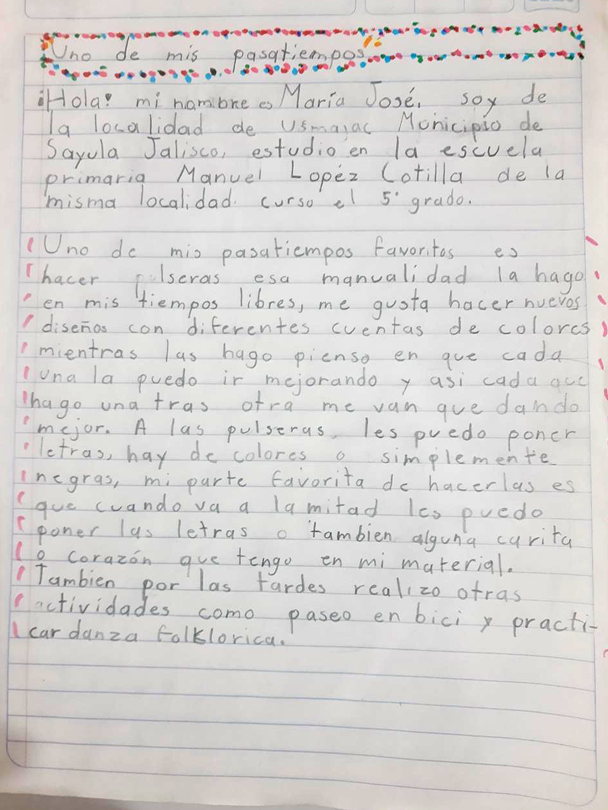 Uno de mis pasatiempos
¡Hola! mi nombre es María José, soy de
la localidad de Usmajac Municipio de
Sayula Jalisco, estudio en la escuela
primaria Manuel Lopéz Cotilla de la
misma localidad. curso el 5° grado.
Uno de mis pasatiempos favoritos es
hacer pulseras esa manualidad la hago
en mis tiempos libres, me gusta hacer nuevos
diseños con diferentes cuentas de colores
mientras las hago pienso en que cada
una la puedo ir mejorando y asi cada que
hago una tras otra me van que dando
mejor. A las pulseras les puedo poner
letras, hay de colores o simplemente
negras, mi parte favorita de hacerlas es
que cuando va a la mitad les puedo
poner las letras o tambien alguna carita
o corazón que tengo en mi material.
Tambien por las tardes realizo otras
actividades como paseo en bici y practi-
car danza folklorica.